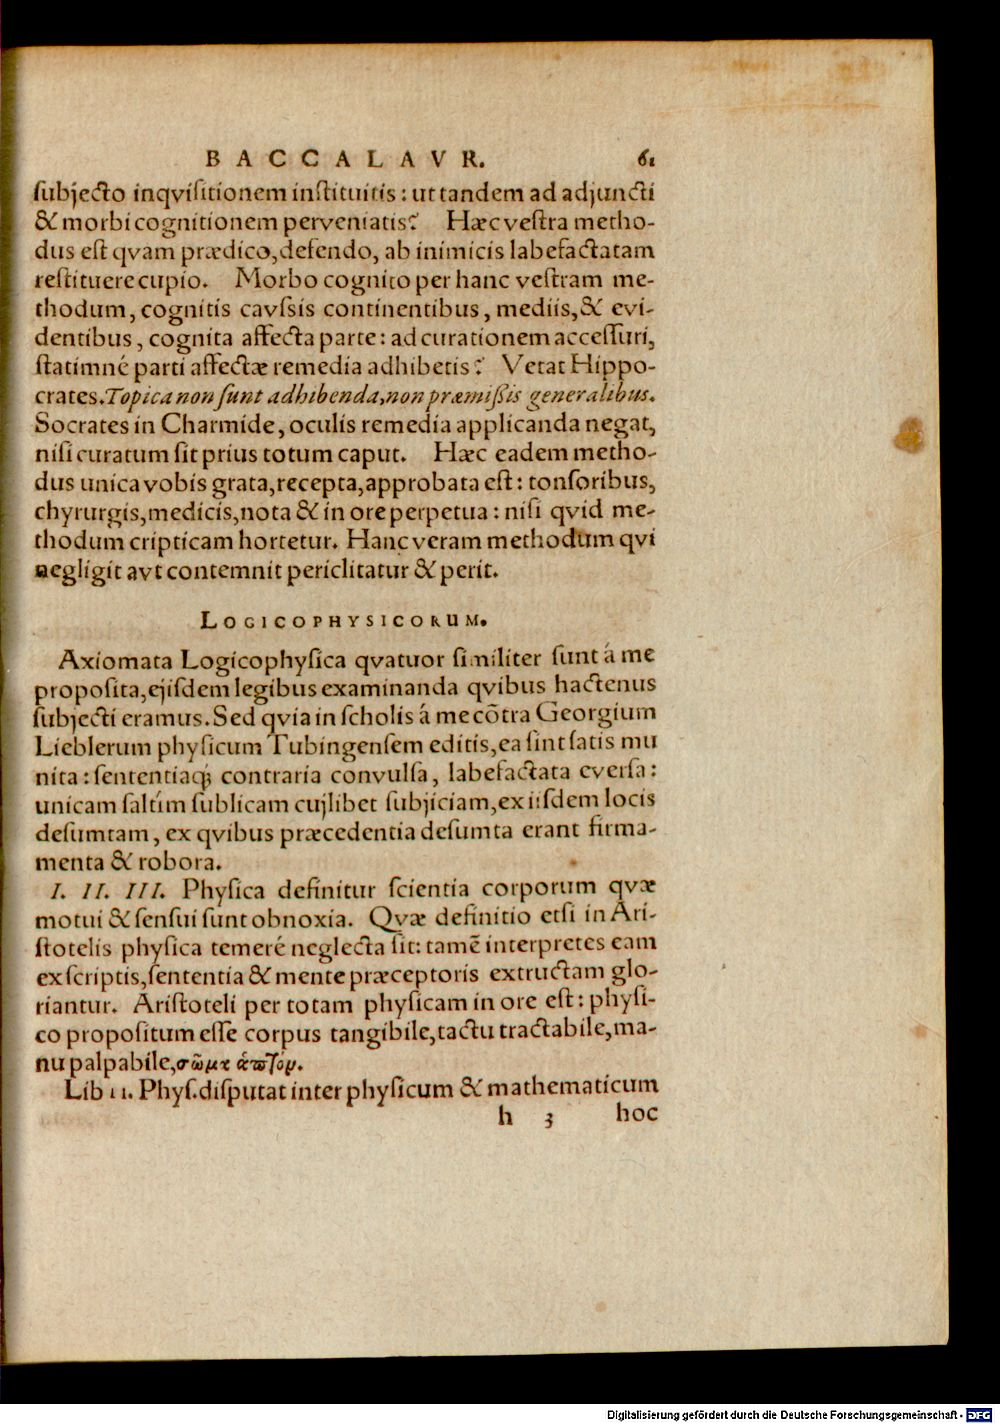 BACCALAVR. 61
ſubjecto inqviſitionem inſtituitis: ut tandem ad adjuncti
& morbi cognitionem perveniatis? Hæc veſtra metho-
dus eſt qvam prædico, defendo, ab inimicis labefactatam
reſtituere cupio. Morbo cognito per hanc veſtram me-
thodum, cognitis cavſsis continentibus, mediis, & evi-
dentibus, cognita affecta parte: ad curationem acceſſuri,
ſtatimné parti affectæ remedia adhibetis? Vetat Hippo-
crates. Topica non ſunt adhibenda, non præmiſsis generalibus.
Socrates in Charmide, oculis remedia applicanda negat,
niſi curatum ſit prius totum caput. Hæc eadem metho-
dus unica vobis grata, recepta, approbata eſt: tonſoribus,
chyrurgis, medicis, nota & in ore perpetua: niſi qvid me-
thodum cripticam hortetur. Hanc veram methodum qvi
negligit avt contemnit periclitatur & perit.
LOGICOPHYSICORUM.
Axiomata Logicophyſica qvatuor ſimiliter ſunt á me
propoſita, ejiſdem legibus examinanda qvibus hactenus
ſubjecti eramus. Sed qvia in ſcholis á me cõtra Georgium
Lieblerum phyſicum Tubingenſem editis, ea ſint ſatis mu
nita: ſententiaq; contraria convulſa, labefactata everſa:
unicam ſaltim ſublicam cujlibet ſubjiciam, ex iiſdem locis
deſumtam, ex qvibus præcedentia deſumta erant firma-
menta & robora.
I. II. III. Phyſica definitur ſcientia corporum qvæ
motui & ſenſui ſunt obnoxia. Qvæ definitio etſi in Ari-
ſtotelis phyſica temeré neglecta ſit: tamẽ interpretes eam
ex ſcriptis, ſententia & mente præceptoris extructam glo-
riantur. Ariſtoteli per totam phyſicam in ore eſt: phyſi-
co propoſitum eſſe corpus tangibile, tactu tractabile, ma-
nu palpabile, σῶμα ἁπτόν.
Lib II. Phyſ. diſputat inter phyſicum & mathematicum
h 3 hoc
Digitalisierung gefördert durch die Deutsche Forschungsgemeinschaft - DFG